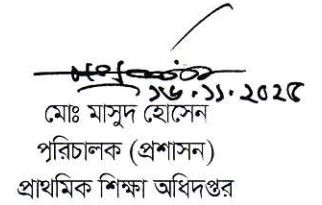 ১৬.১১.২০২৫
মোঃ মাসুদ হোসেন
পরিচালক (প্রশাসন)
প্রাথমিক শিক্ষা অধিদপ্তর